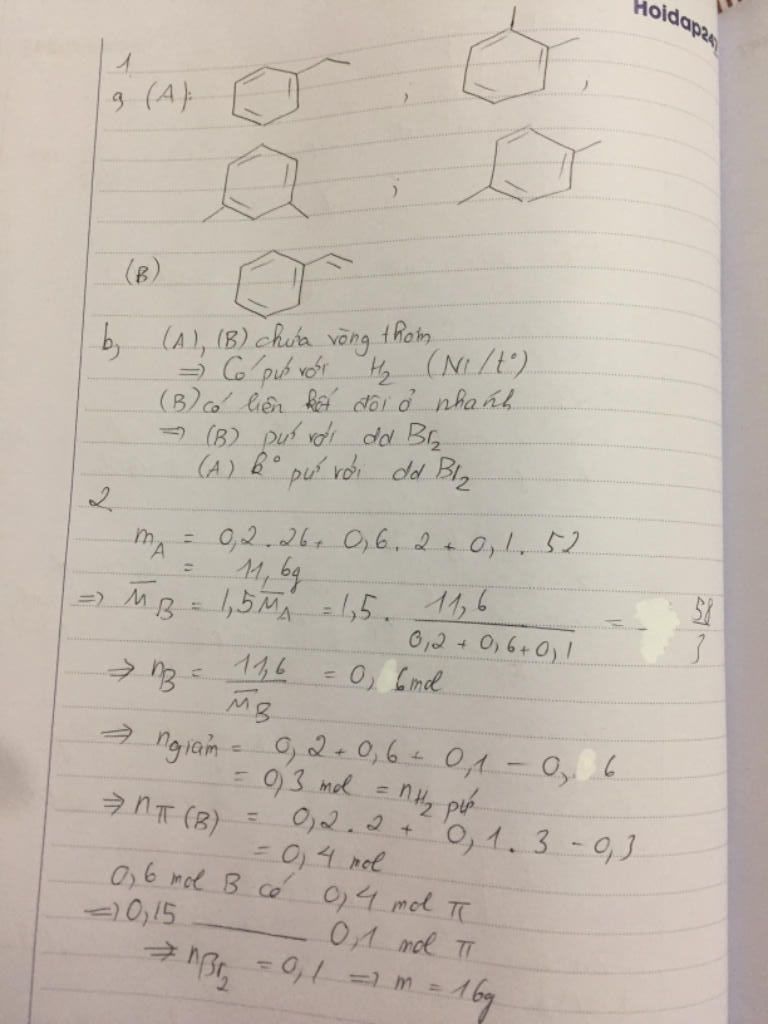 Hoidap247
1
a, (A): ; ,
;
(B)
b, (A), (B) chứa vòng thơm
⇒ Có pứ với H₂ (Ni/t°)
(B) có liên kết đôi ở nhánh
⇒ (B) pứ với dd Br₂
(A) k° pứ với dd Br₂
2
m_A = 0,2.26 + 0,6.2 + 0,1.52
= 11,6g
⇒ M̄_B = 1,5M̄_A = 1,5. 11,6/(0,2+0,6+0,1) = 58/3
⇒ n_B = 11,6/M̄_B = 0,6mol
⇒ n giảm = 0,2+0,6+0,1-0,6
= 0,3 mol = n_H₂ pứ
⇒ n_π(B) = 0,2.2 + 0,1.3 - 0,3
= 0,4 mol
0,6 mol B có 0,4 mol π
⇒ 0,15 ——— 0,1 mol π
⇒ n_Br₂ = 0,1 ⇒ m = 16g